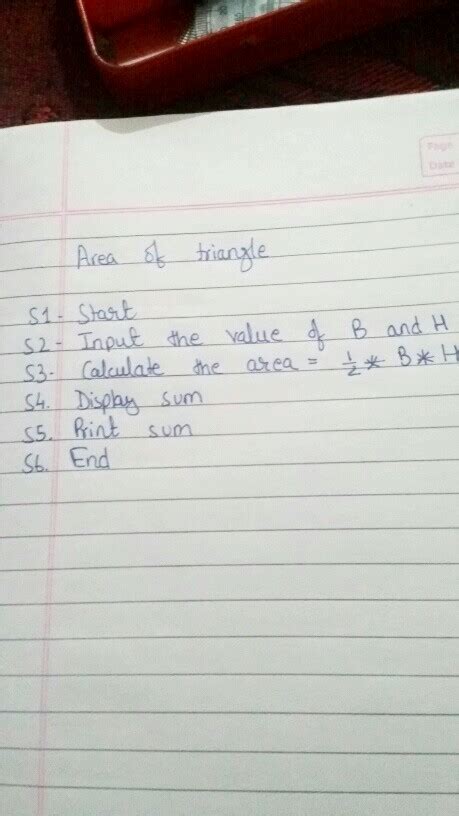 Page
Date
Area of triangle
S1- Start
S2- Input the value of B and H
S3- Calculate the area = 1/2 * B * H
S4. Display sum
S5. Print sum
S6. End